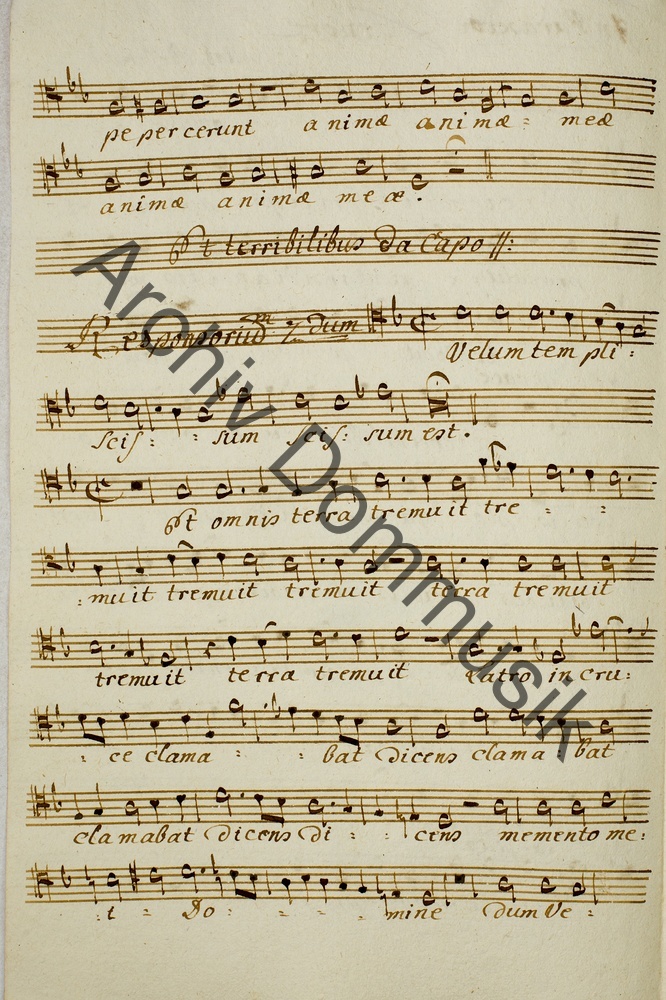 pe per cerunt a nimæ a nimæ = meæ
animæ animæ meæ.
Et terribilibus Da Capo //:
Responsoriu͞m 2dum
Velum tem pli:
scis: : sum scis: sum est.
Et omnis terra tremuit tre = = =
:muit tremuit tremuit terra tremuit
tremuit terra tremuit Latro in cru:
: ce clama : : bat dicens clama : bat
clamabat dicens di : : cens memento me:
:i = Do : = = = mine dum Ve =
Archiv Dommusik